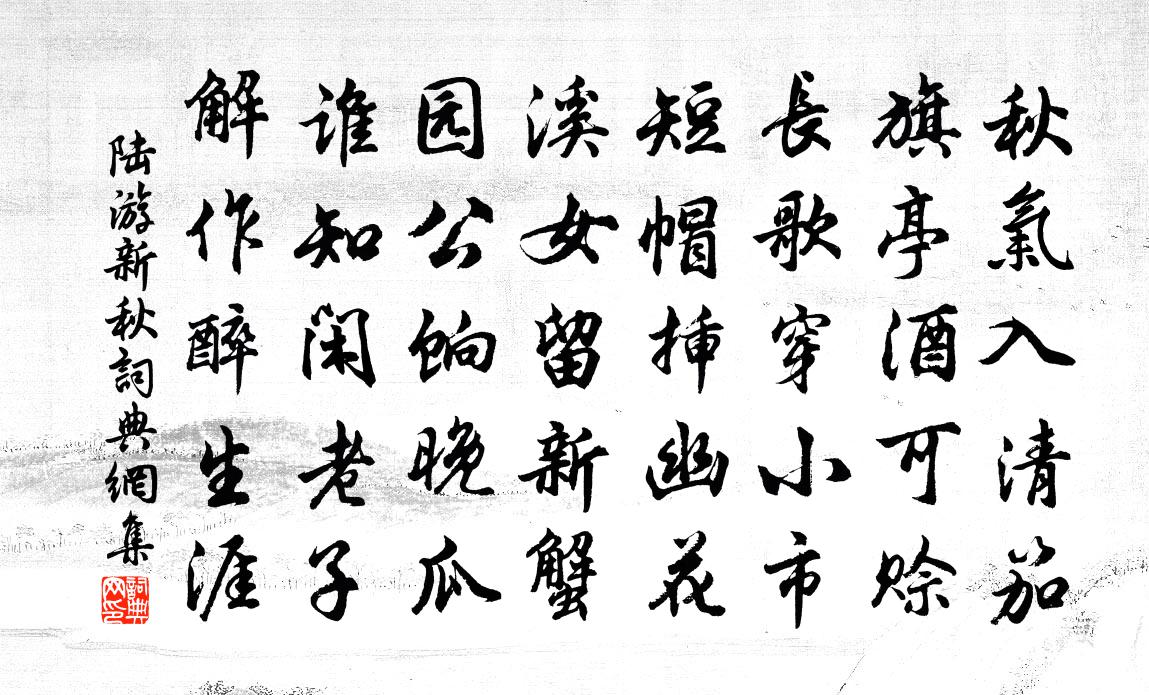 秋氣入清笳
旗亭酒可赊
長歌穿小市
短帽挿幽花
溪女留新蟹
园公餉晚瓜
谁知闲老子
解作醉生涯
陆游新秋詞典網集
詞典网印